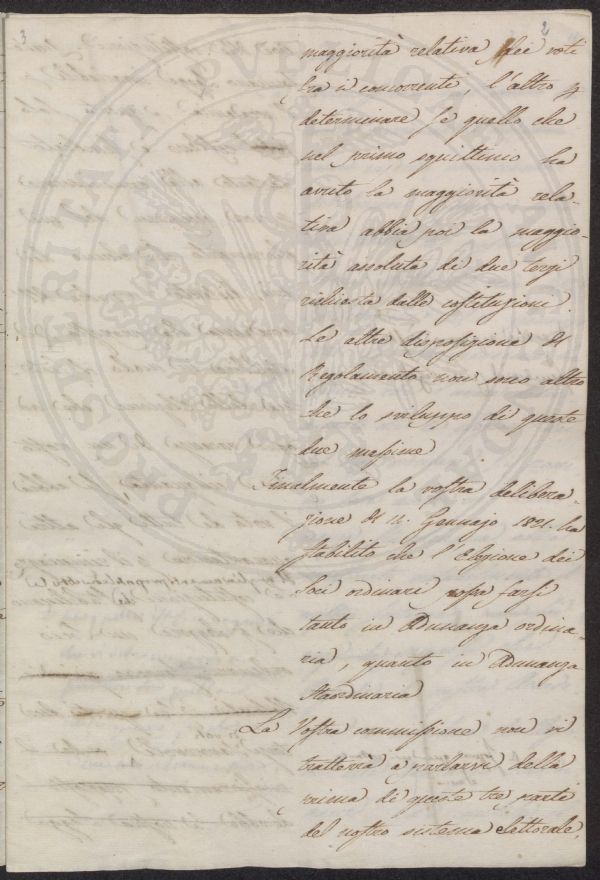 3
2
maggiorità relativa dei voti
fra i concorrenti, l'altro p
determinare se quello che
nel primo squittinio ha
avuto la maggiorità rela-
tiva abbia poi la maggio-
rità assoluta di due terzi
richiesta dalle costituzioni.
Le altre disposizioni del
Regolamento non sono altro
che lo sviluppo di queste
due massime
Finalmente la vostra delibera-
zione del 11. Gennajo 1821. ha
stabilito che l'Elezione dei
Soci ordinari possa farsi
tanto in Adunanza ordina-
ria, quanto in Adunanza
straordinaria
La Vostra commissione non si
tratterrà a parlarvi della
prima di queste tre parti
del nostro sistema elettorale,